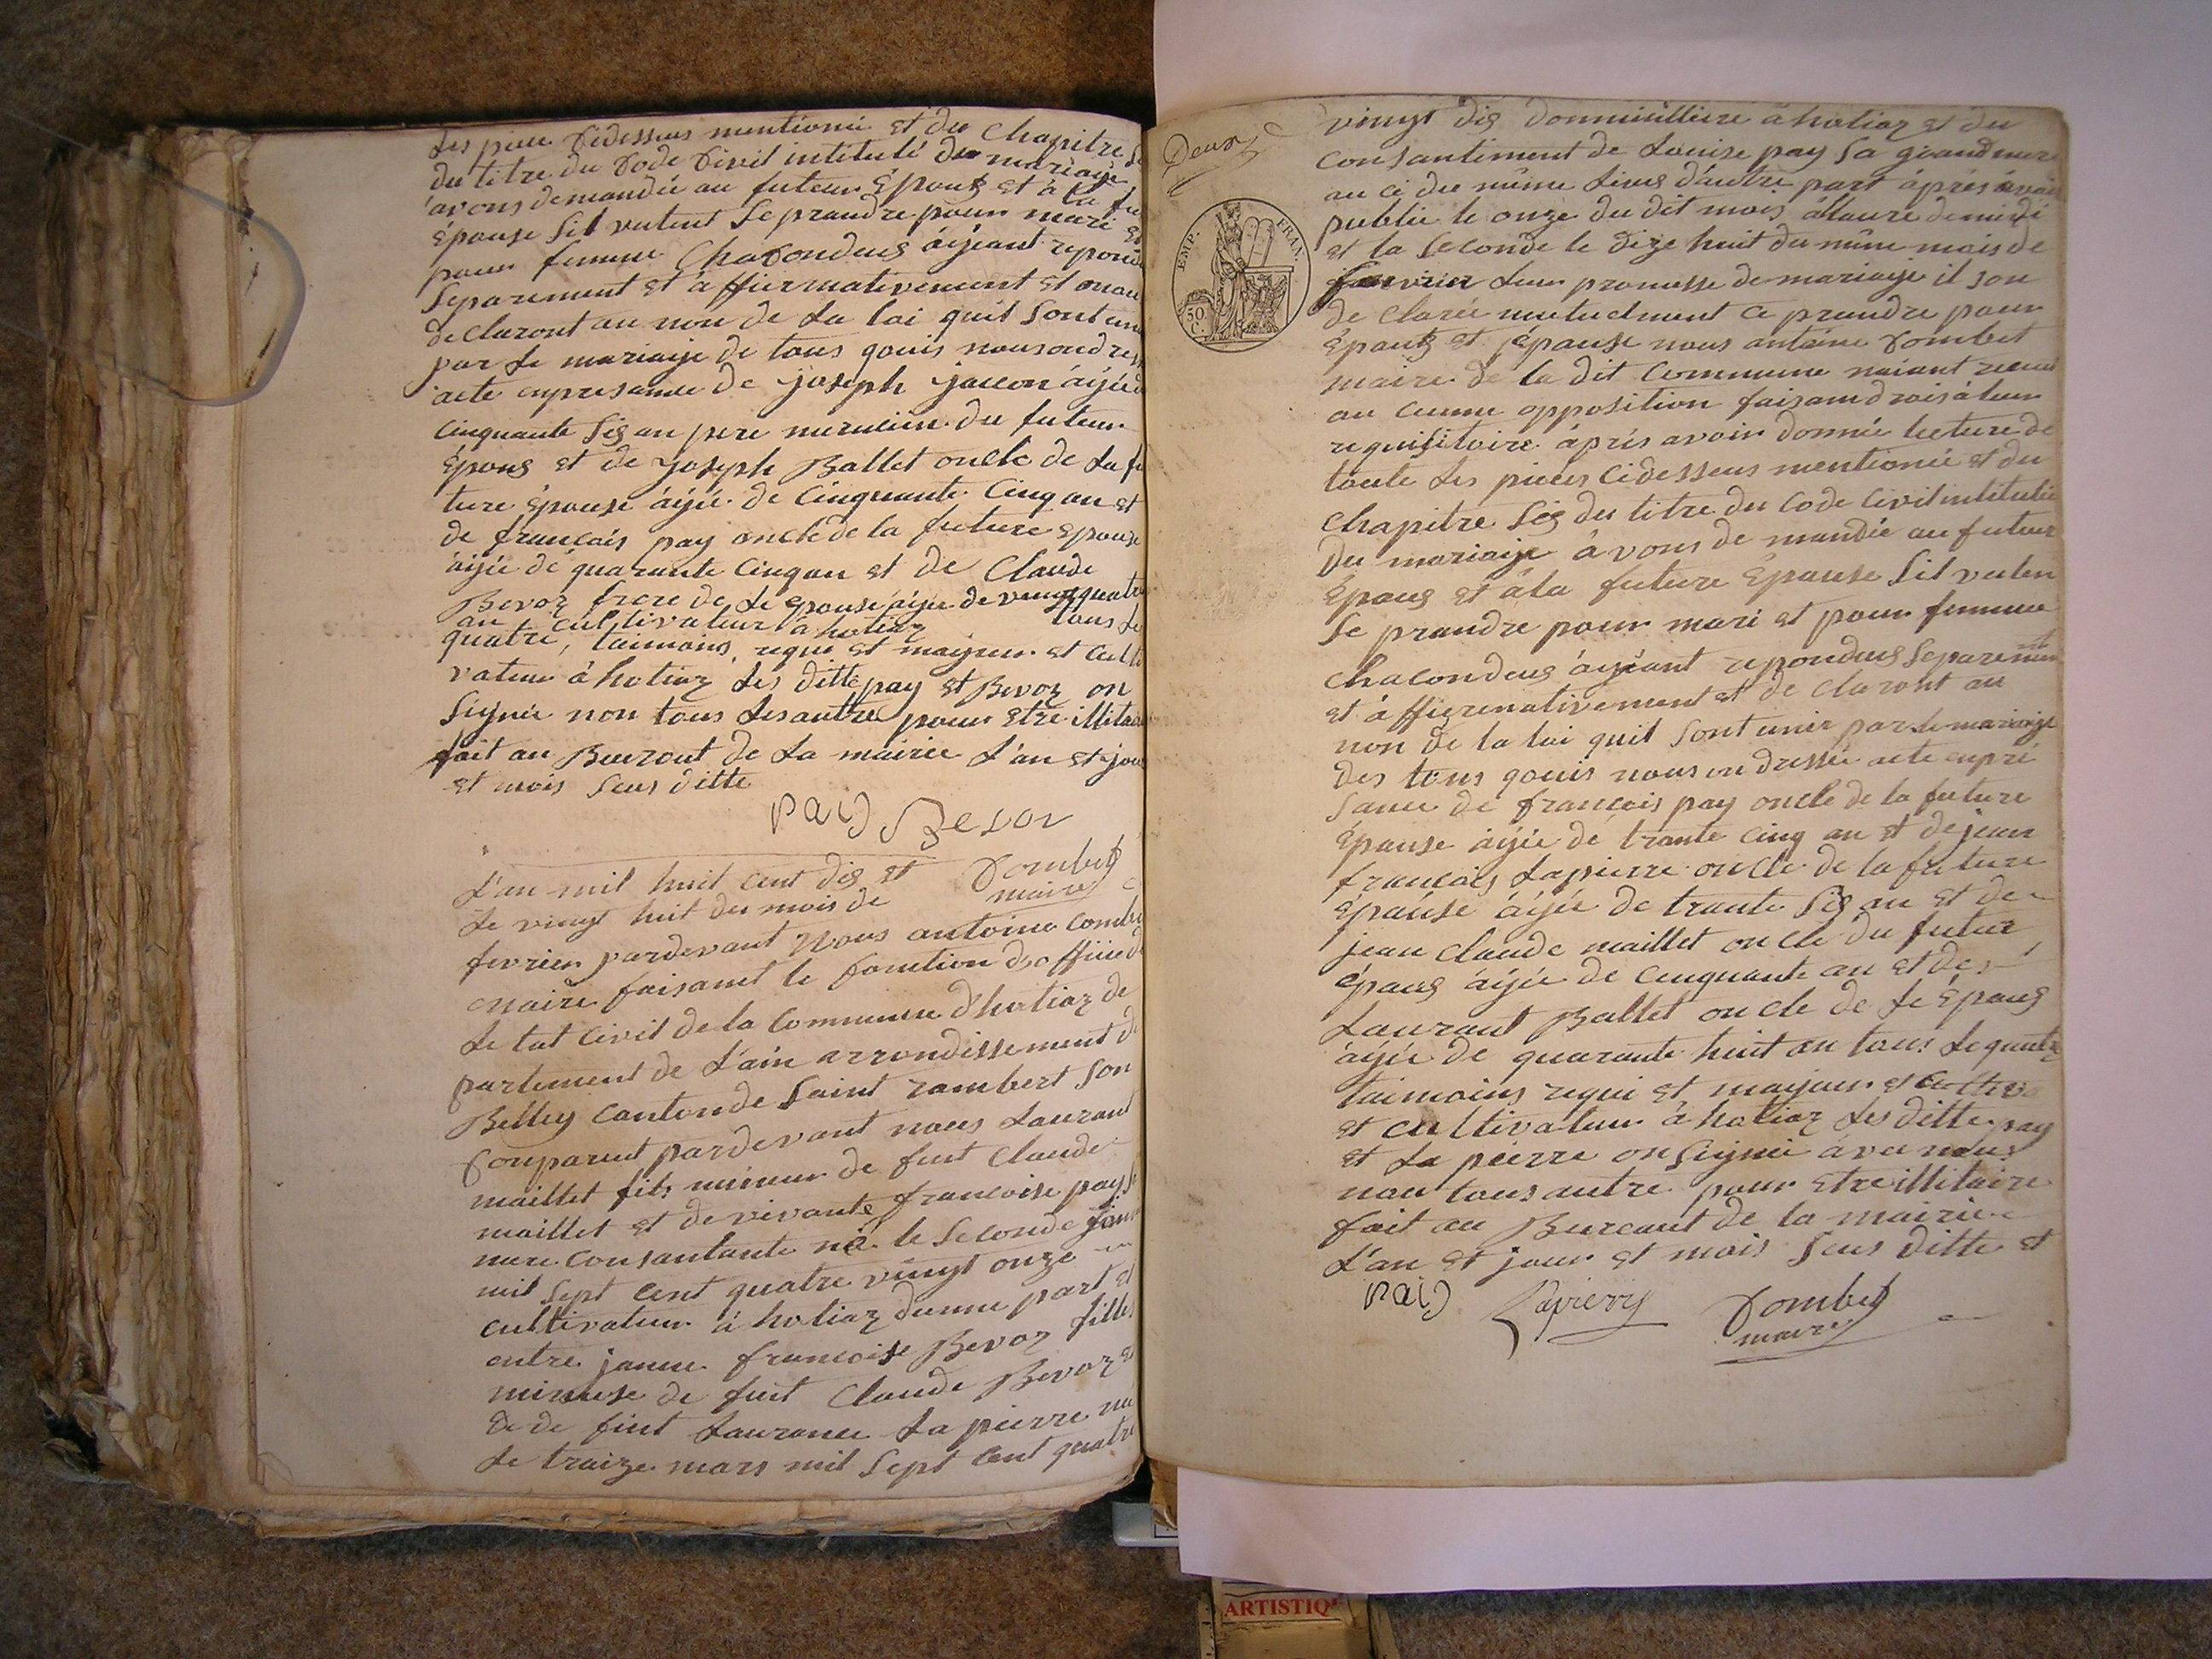 Les piece Cidessus mentionné et du Chapitre
du titre du Code Civil intitulé du mariaije
avons demandée au futeur Épouξ et à la fu
Épouse Sil vulent Se prandre pour mari et
pour femme Chacondeus áijeant repondu
Separement et áffiermativement et onou
declaront au non de La lai quil Sont uni
par Le mariaije de tous qouis nous ondres
acte enpresance de joseph jacon áijée
Cinquante Sis an pere du futeur
Épous et de joseph Ballet oncle de La fu
ture épouse áijée de Cinquante Cinq an et
de francais pay oncle de la future épouse
áijée de quarante Cinq an et de Claude
Bevoz frere de Le épouse áijée de vingt quatre
an cultivateur á hotiaz tous Le
quatre, taimoins, requi et maijeur et Culti
vateur á hotiaz Les ditte pay et Bevoz on
Signée non tous Lesautre pour etre illitai
fait au Bureaut de La mairie L'an et jour
et mois Seus ditte
paij Bevoz
Combet
maire
L'an mil huit cent dis et
Le vingt huit du mois de
fevrier pardevant Nous antoine Combe
maire faisant le fonction d'officie de
Le tat Civil de la Commune d'hotiaz de
partement de L'ain arrondissement de
Belley Canton de Saint rambert Son
Conparut pardevant nous Laurant
maillet fils mineur de fut Claude
maillet et de vivante francoise pay
mere consantante né le Seconde janv
mil Sept Cent quatre vingt onze
cultivateur á hotiaz dunne part et
autre janne francoise Bevoz fille
mineuse de fuit Claude Bevoz et
de de fuit Laurance La pierre né
Le traize mars mil Sept Cent quatre
Deux
EMP. FRAN.
50 C.
vingt dis donmicilliere á hotiaz et du
Consantiment de Louise pay sa grandmere
au ci du même Lieus d'autre part áprés avoir
publié le onze du dit mois á laure de midi
et la Seconde le dize huit du même mois de
fevrier Leur promesse de mariaije il son
de clarée mutuelment Ce prandre pour
épouξ et épouse nous antoine Combet
maire de la dit Commune náiant recus
au cunne opposition faisant drois á leur
requisitoire áprés avoir donnée lecture de
toute Les pieces Cidesseus mentionée et du
Chapitre Sis du titre du Code Civil intitulée
Du mariaije á vons de mandée au futeur
épous et á la future épouse Sil veulen
Se prandre pour mari et pour femme
Chacondeus áijéant repondus Separement
et á ffiermativement et de claront au
non de la lai quil Sont unis par Le mariaije
des tous qouis nous on dressée acte enpré
sance de francois pay oncle de la future
épouse áijée de trante Cinq an et de jean
francois Lapierre oncle de la future
épouse áijée de trante Sis an et de
jean Claude maillet oncle du futur
épous áijée de Cinquante an et de
Laurant Ballet oncle de Le épous
áijée de quarante huit an tous Le quatre
taimoins requi et maijeur et Cultiva
et cultivateur á hotiaz Les ditte pay
et La pierre on Signée ávec nous
non tous autre pour etre illitaire
fait au Bureaut de la mairie
L'an et jour et mois Seus ditte et
paij Lapierre Combet
maire
ARTISTIQ